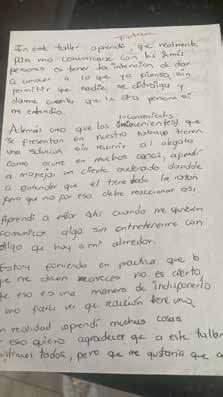 En este taller aprendí, que realmente
para mo comunicarse con los demás
personas es tener la intención de dar
a conocer a lo que yo pienso, sin
permitir que nadie se distraiga y
darme cuenta que la otra persona si
me entendio.
Inconvenientes
Además creo que los que
se presentan en nuestro trabajo tienen
una solución sin recurrir al alegato
como ocurre en muchos casos, aprendí
a manejar un cliente acelerado dandole
a entender que el tiene toda la razón
pero que no por eso debe reaccionar asi,
Aprendi a estar ahi cuando me quieren
comunicar algo sin entretenerme con
algo que hay a mi alrredor.
Estoy poniendo en practica que lo
que me dicen aveces no es cierto,
que eso es una manera de indisponerlo
uno para ver que reacción tiene uno,
En realidad aprendí muchas cosas
eso quiero agradecer que a este taller
todos, pero que me gustaria que